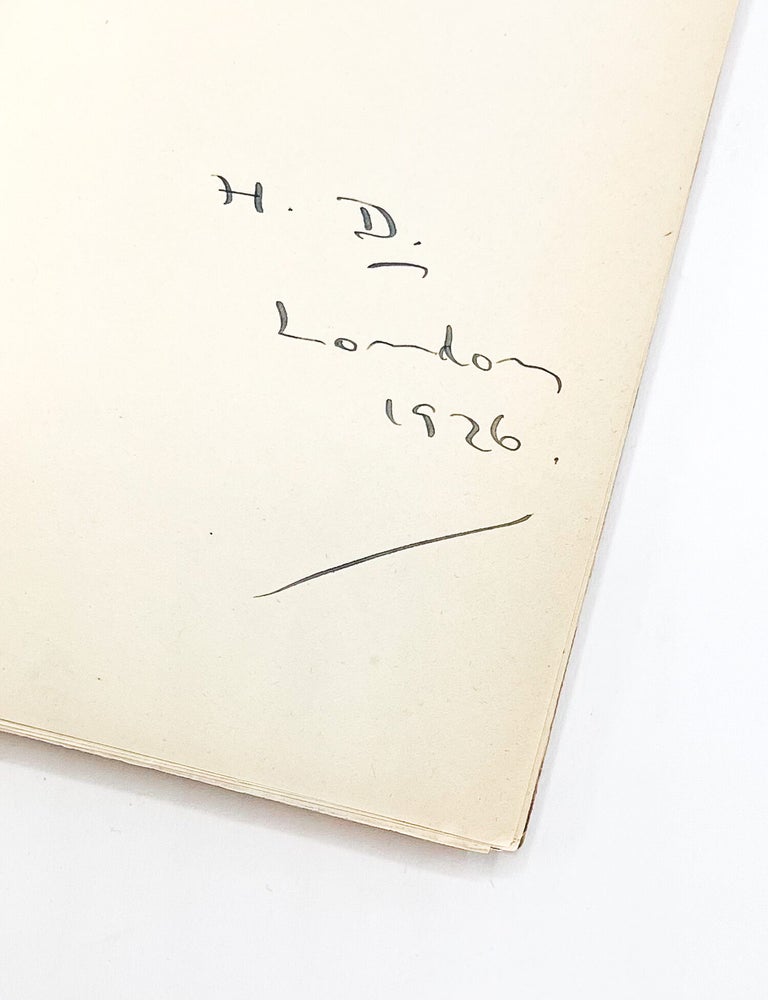 H. D.
London
1926.